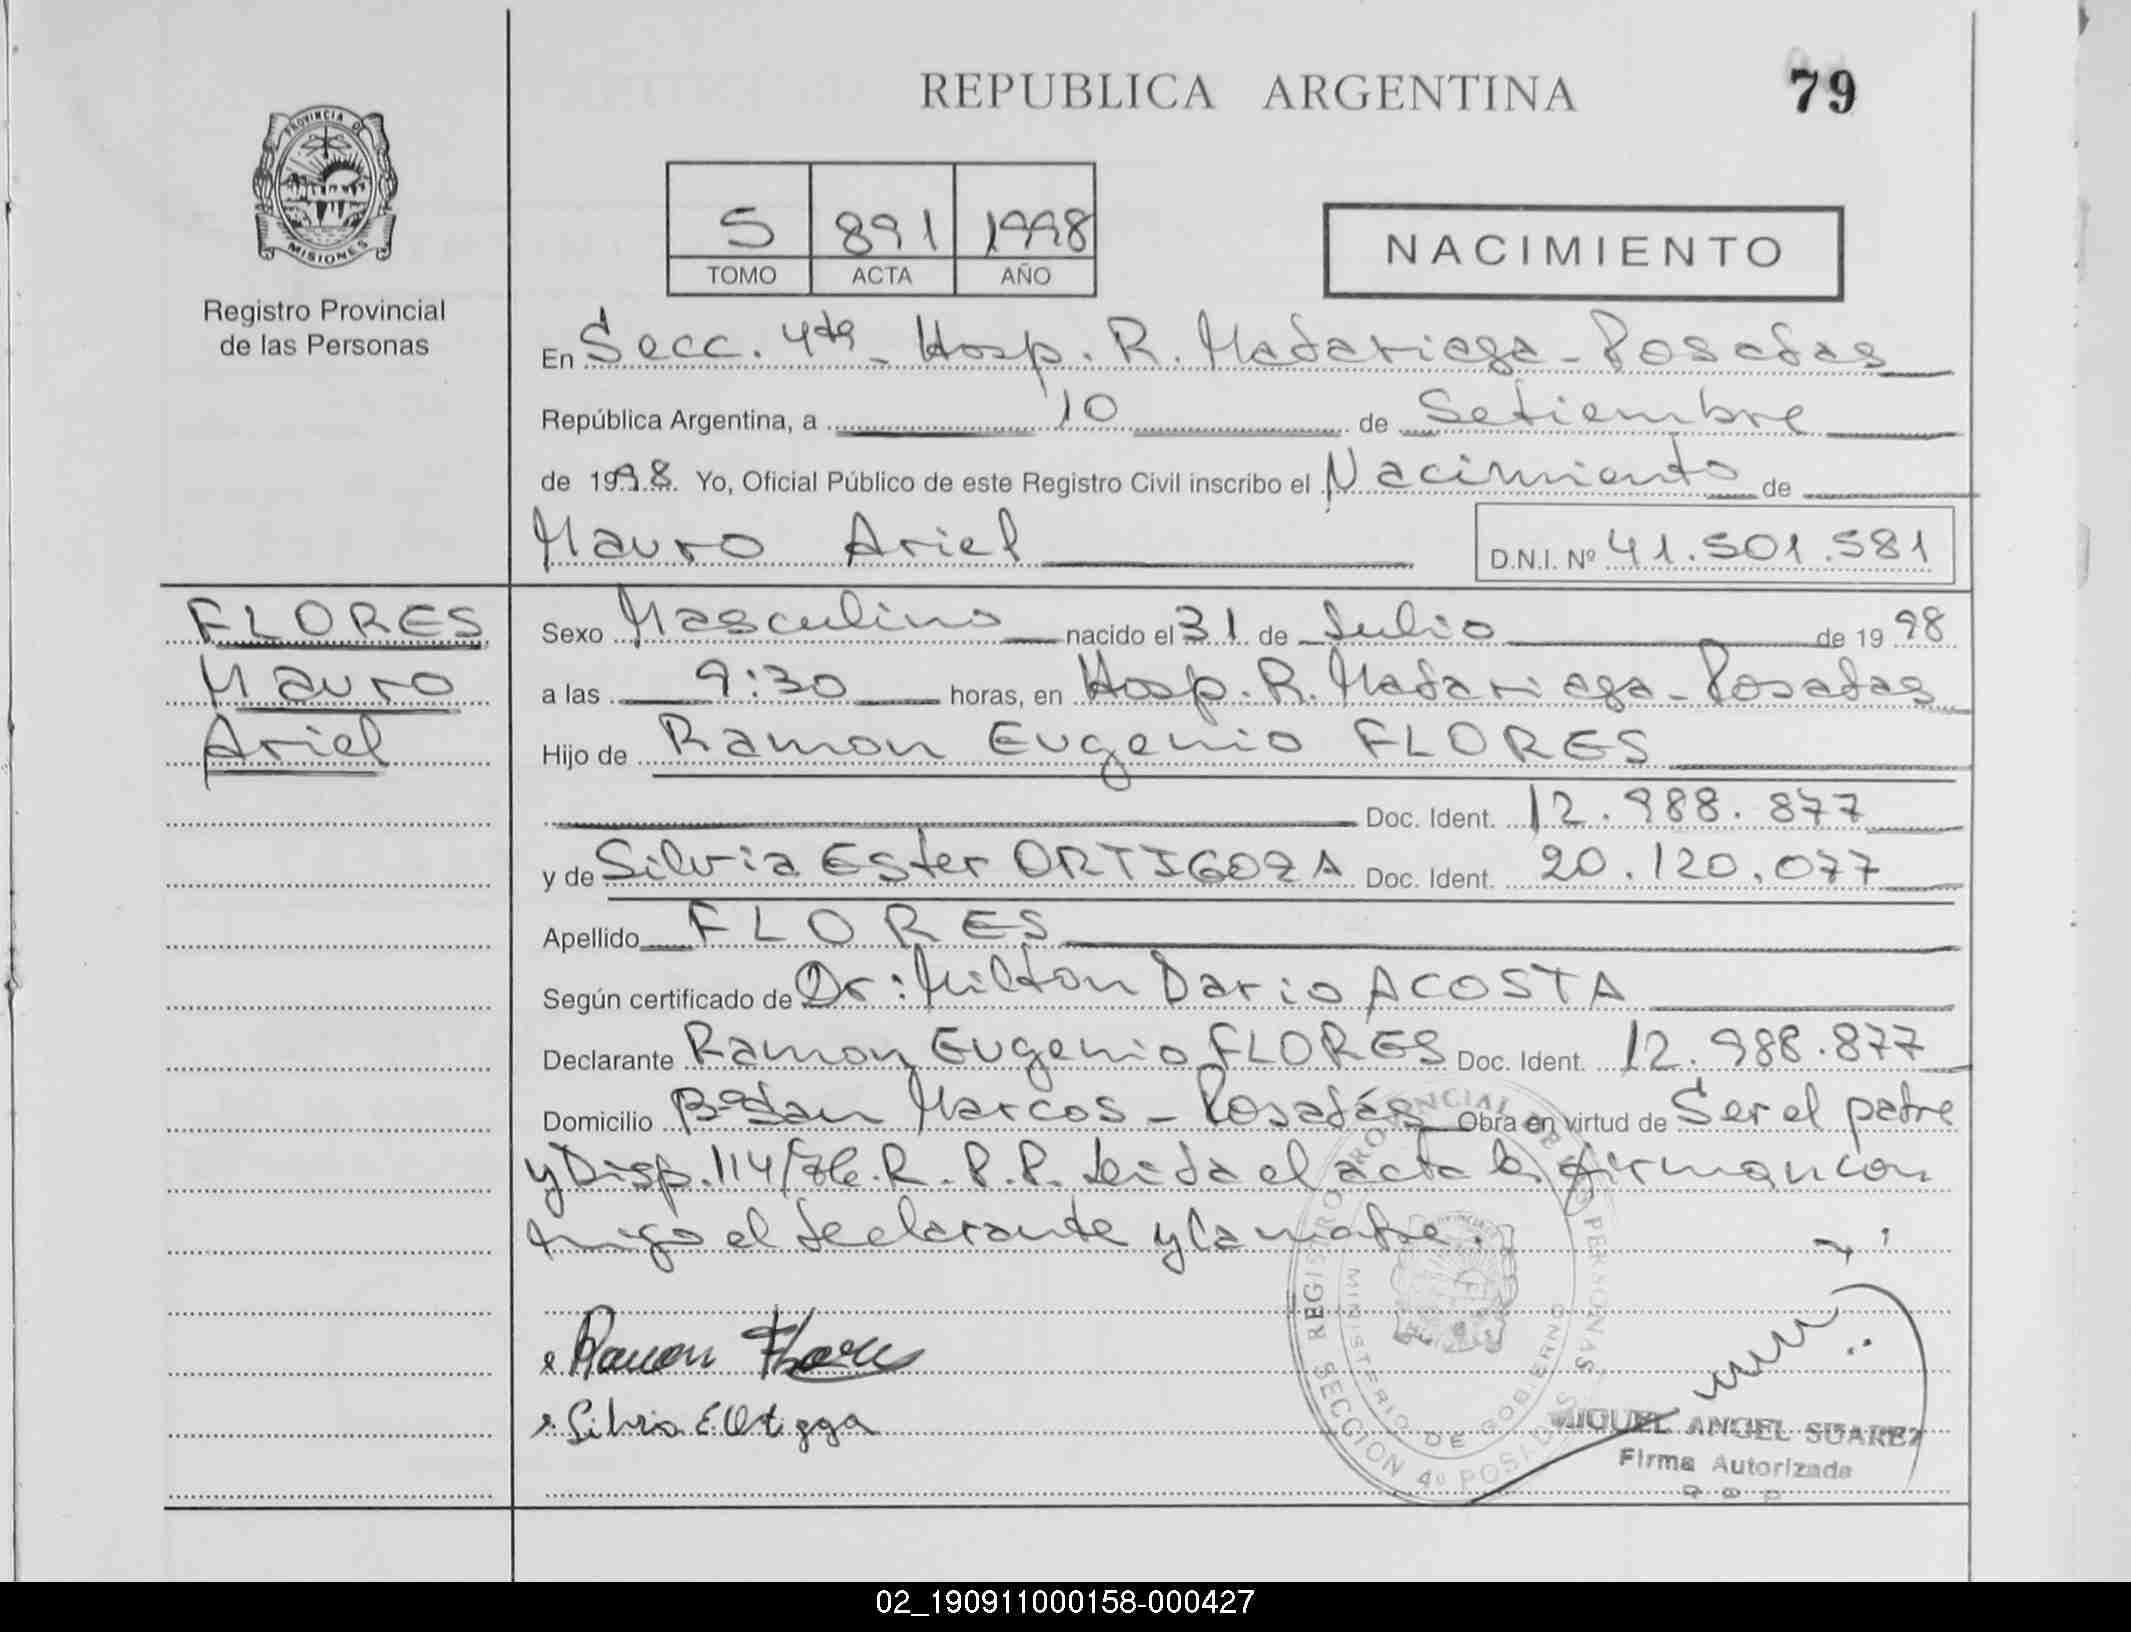 REPUBLICA ARGENTINA
79
PROVINCIA DE
MISIONES
Registro Provincial
de las Personas
5 891 1998
TOMO ACTA AÑO
NACIMIENTO
En Secc. 4ta - Hosp. R. Madariaga - Posadas
República Argentina, a 10 de Setiembre
de 1998. Yo, Oficial Público de este Registro Civil inscribo el Nacimiento de
Mauro Ariel D.N.I. Nº 41.501.581
FLORES
Mauro
Ariel
Sexo Masculino nacido el 31 de Julio de 1998
a las 9:30 horas, en Hosp. R. Madariaga - Posadas
Hijo de Ramon Eugenio FLORES
Doc. Ident. 12.988.877
y de Silvia Ester ORTIGOZA Doc. Ident. 20.120.077
Apellido FLORES
Según certificado de Dr: Milton Dario ACOSTA
Declarante Ramon Eugenio FLORES Doc. Ident. 12.988.877
Domicilio Bº San Marcos - Posadas Obra en virtud de Ser el padre
y Disp. 114/86. R. P. P. Leida el acta la firman con
migo el declarante y la madre.
Ramon Flores
Silvia E. Ortigoza
REGISTRO PROVINCIAL DE LAS PERSONAS
MINISTERIO DE GOBIERNO
SECCION 4º POSADAS
MIGUEL ANGEL SUAREZ
Firma Autorizada
02_190911000158-000427